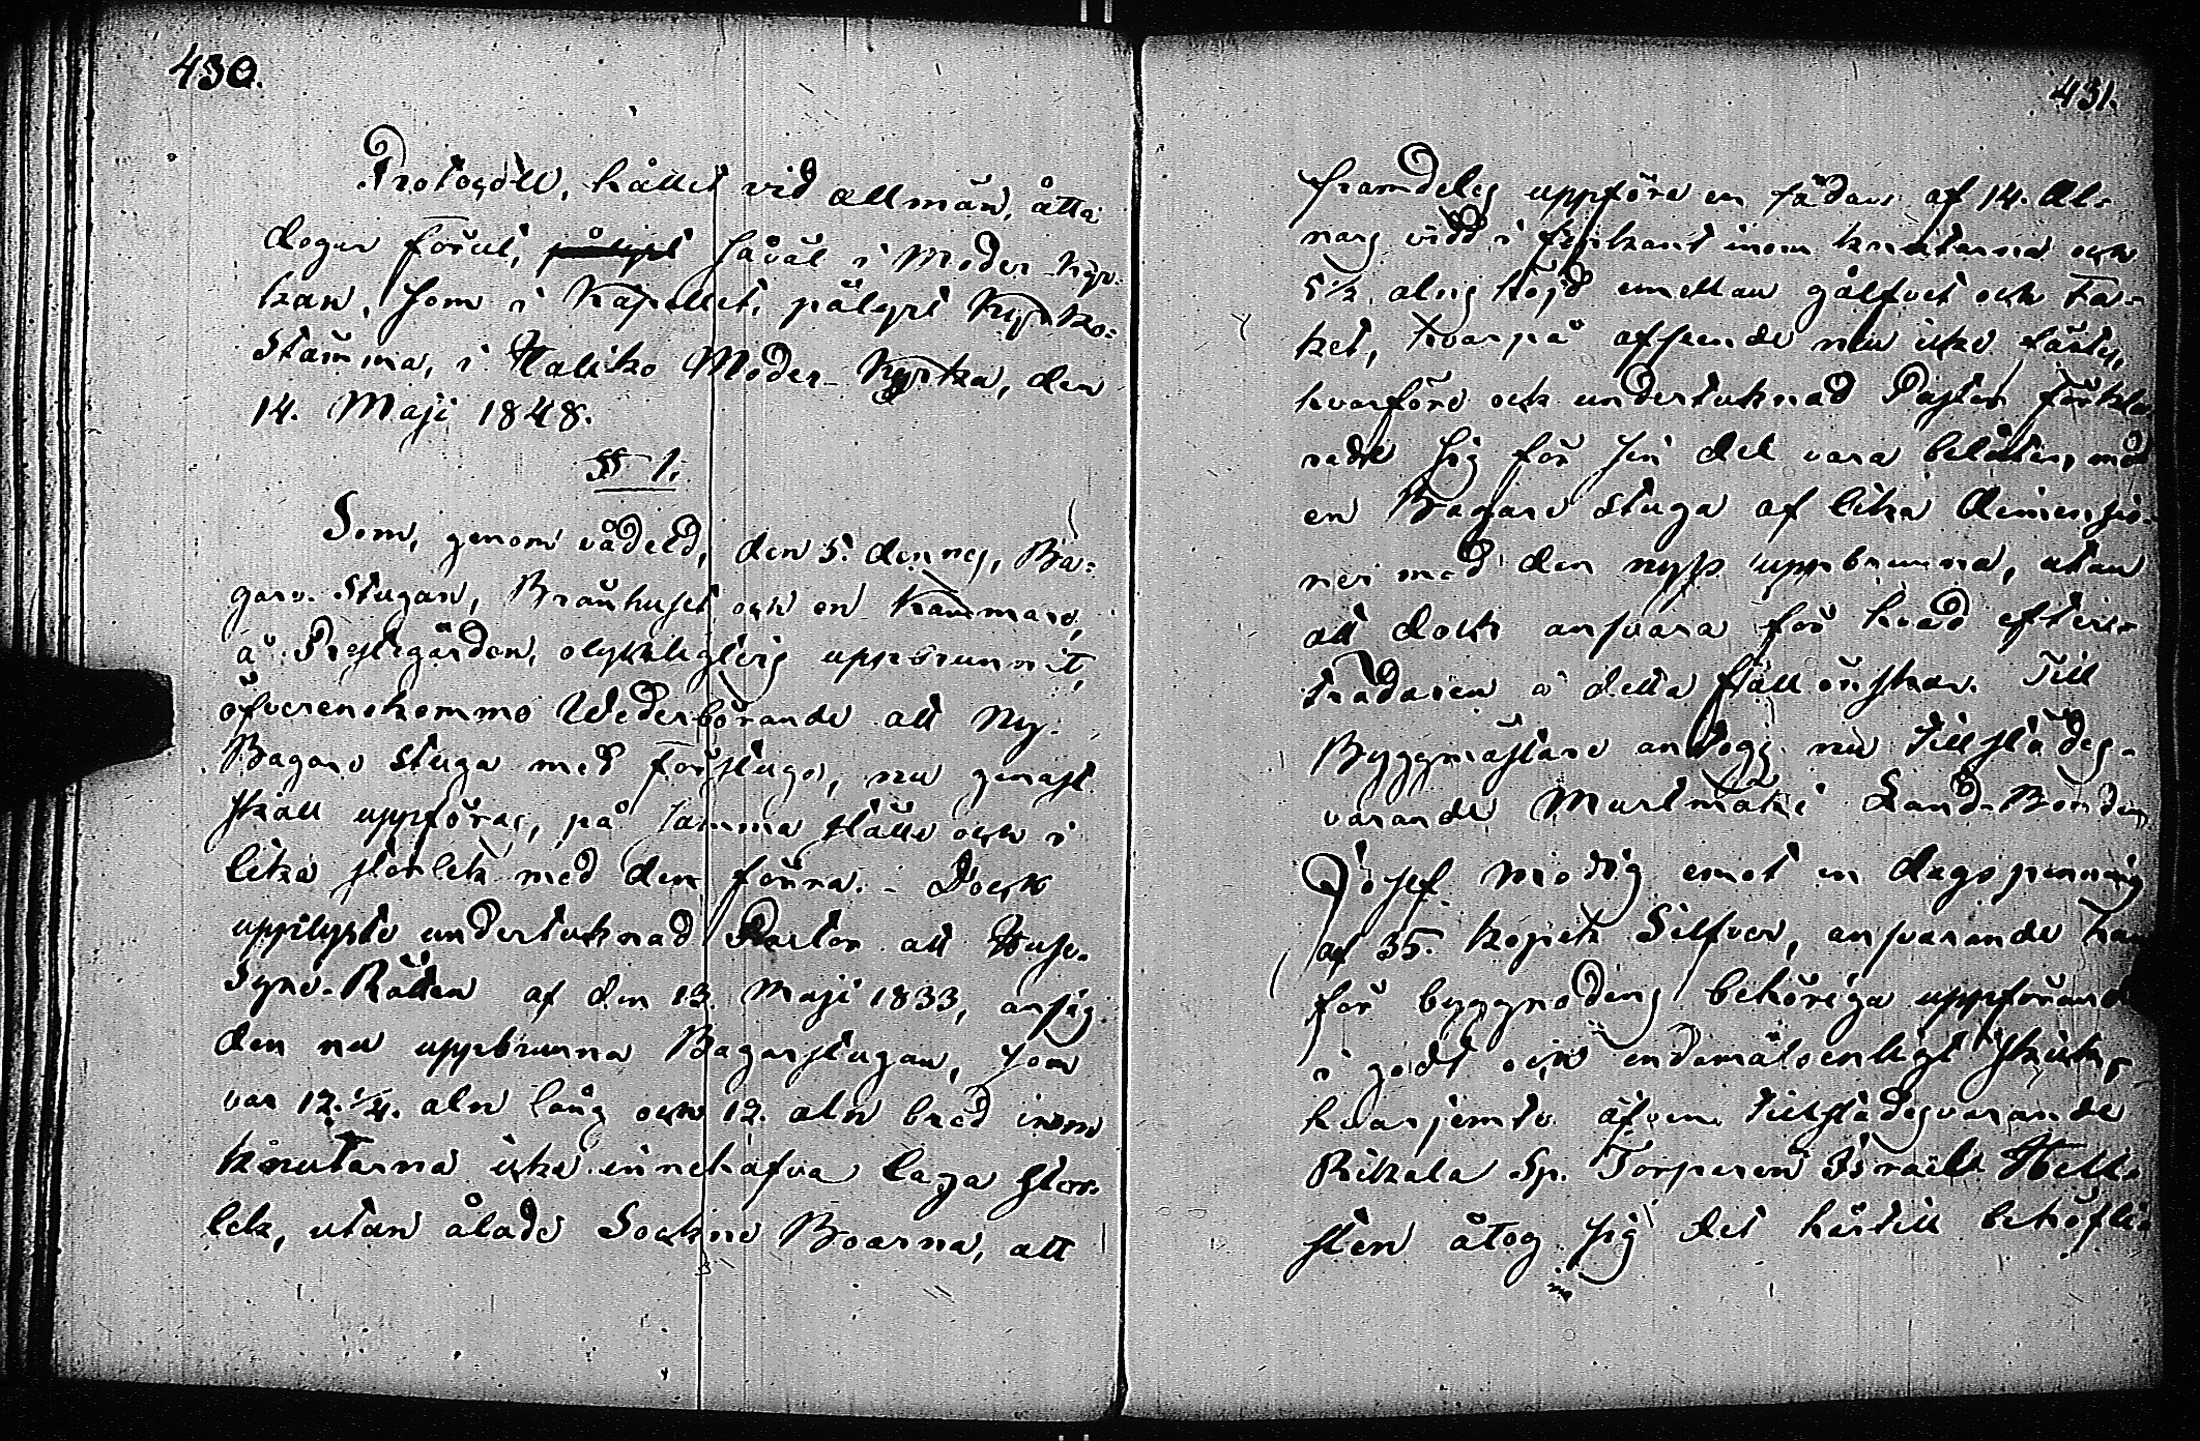 430.
Protocoll, hållet vid allmän, åtta
dagar förut, påslyst såväl i Moder-Kyr-
kan, som i Kapellet, pålyst Kyrko-
Stämma, i Haliko Moder-Kyrka, den
14. Maji 1848.
§ 1.
Som, genom vådeld, den 5. dennes, Ba-
gare Stugan, Brauhuset och en Kammare,
å Prestegården, olyckligtvis uppbrunnit,
öfverenskommo Wederbörande att Ny
Bagare stuga med förstuga, nu genast
skall uppföras, på samma ställe och i
lika storlek med den förra. - Dock
upplyste undertecknad Pastor att Huse-
Syns-Rätten af den 13. Maji 1833, ansåg
den nu uppbrunna Bagarstugan, som
var 12.1/4. aln lång och 12. aln bred inom
knutarna icke innehafva laga stor-
lek, utan ålade Sockne Boarna, att
431.
framdeles uppföra en sådan af 14. Al-
nars vidd i fyrkant inom knutarna och
5 1/2 alns höjd emellan gålfvet och Ta-
ket, hvarpå afseende nu icke fästes,
hvarföre ock undertecknad Pastor förkla
rade sig för sin del vara belåten med
en Bagare stuga af lika dimensio-
ner med den nyss uppbrunna, utan
att dock ansvara för hvad efter-
trädaren i detta fall önskar. Till
Byggmästare antogs nu tillstädes-
varande Murtmäki Land-Bonden
Josef Modig emot en dagspenning
af 35. kopek Silfver, ansvarande han
för byggnadens behöriga uppförande
i godt och ändamålsenligt skick,
hvarjemte äfven tillstädesvarande
Rikala Sp. Torparen Israel Hell-
sten åtog sig det härtill behöfli